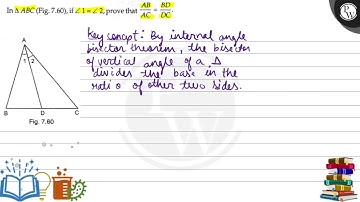 In Δ ABC (Fig. 7.60), if ∠1 = ∠2, prove that AB/AC = BD/DC.
Key concept: By internal angle
bisector theorem, the bisector
of vertical angle of a Δ
divides the base in the
ratio of other two sides.
A
1 2
B D C
Fig. 7.60